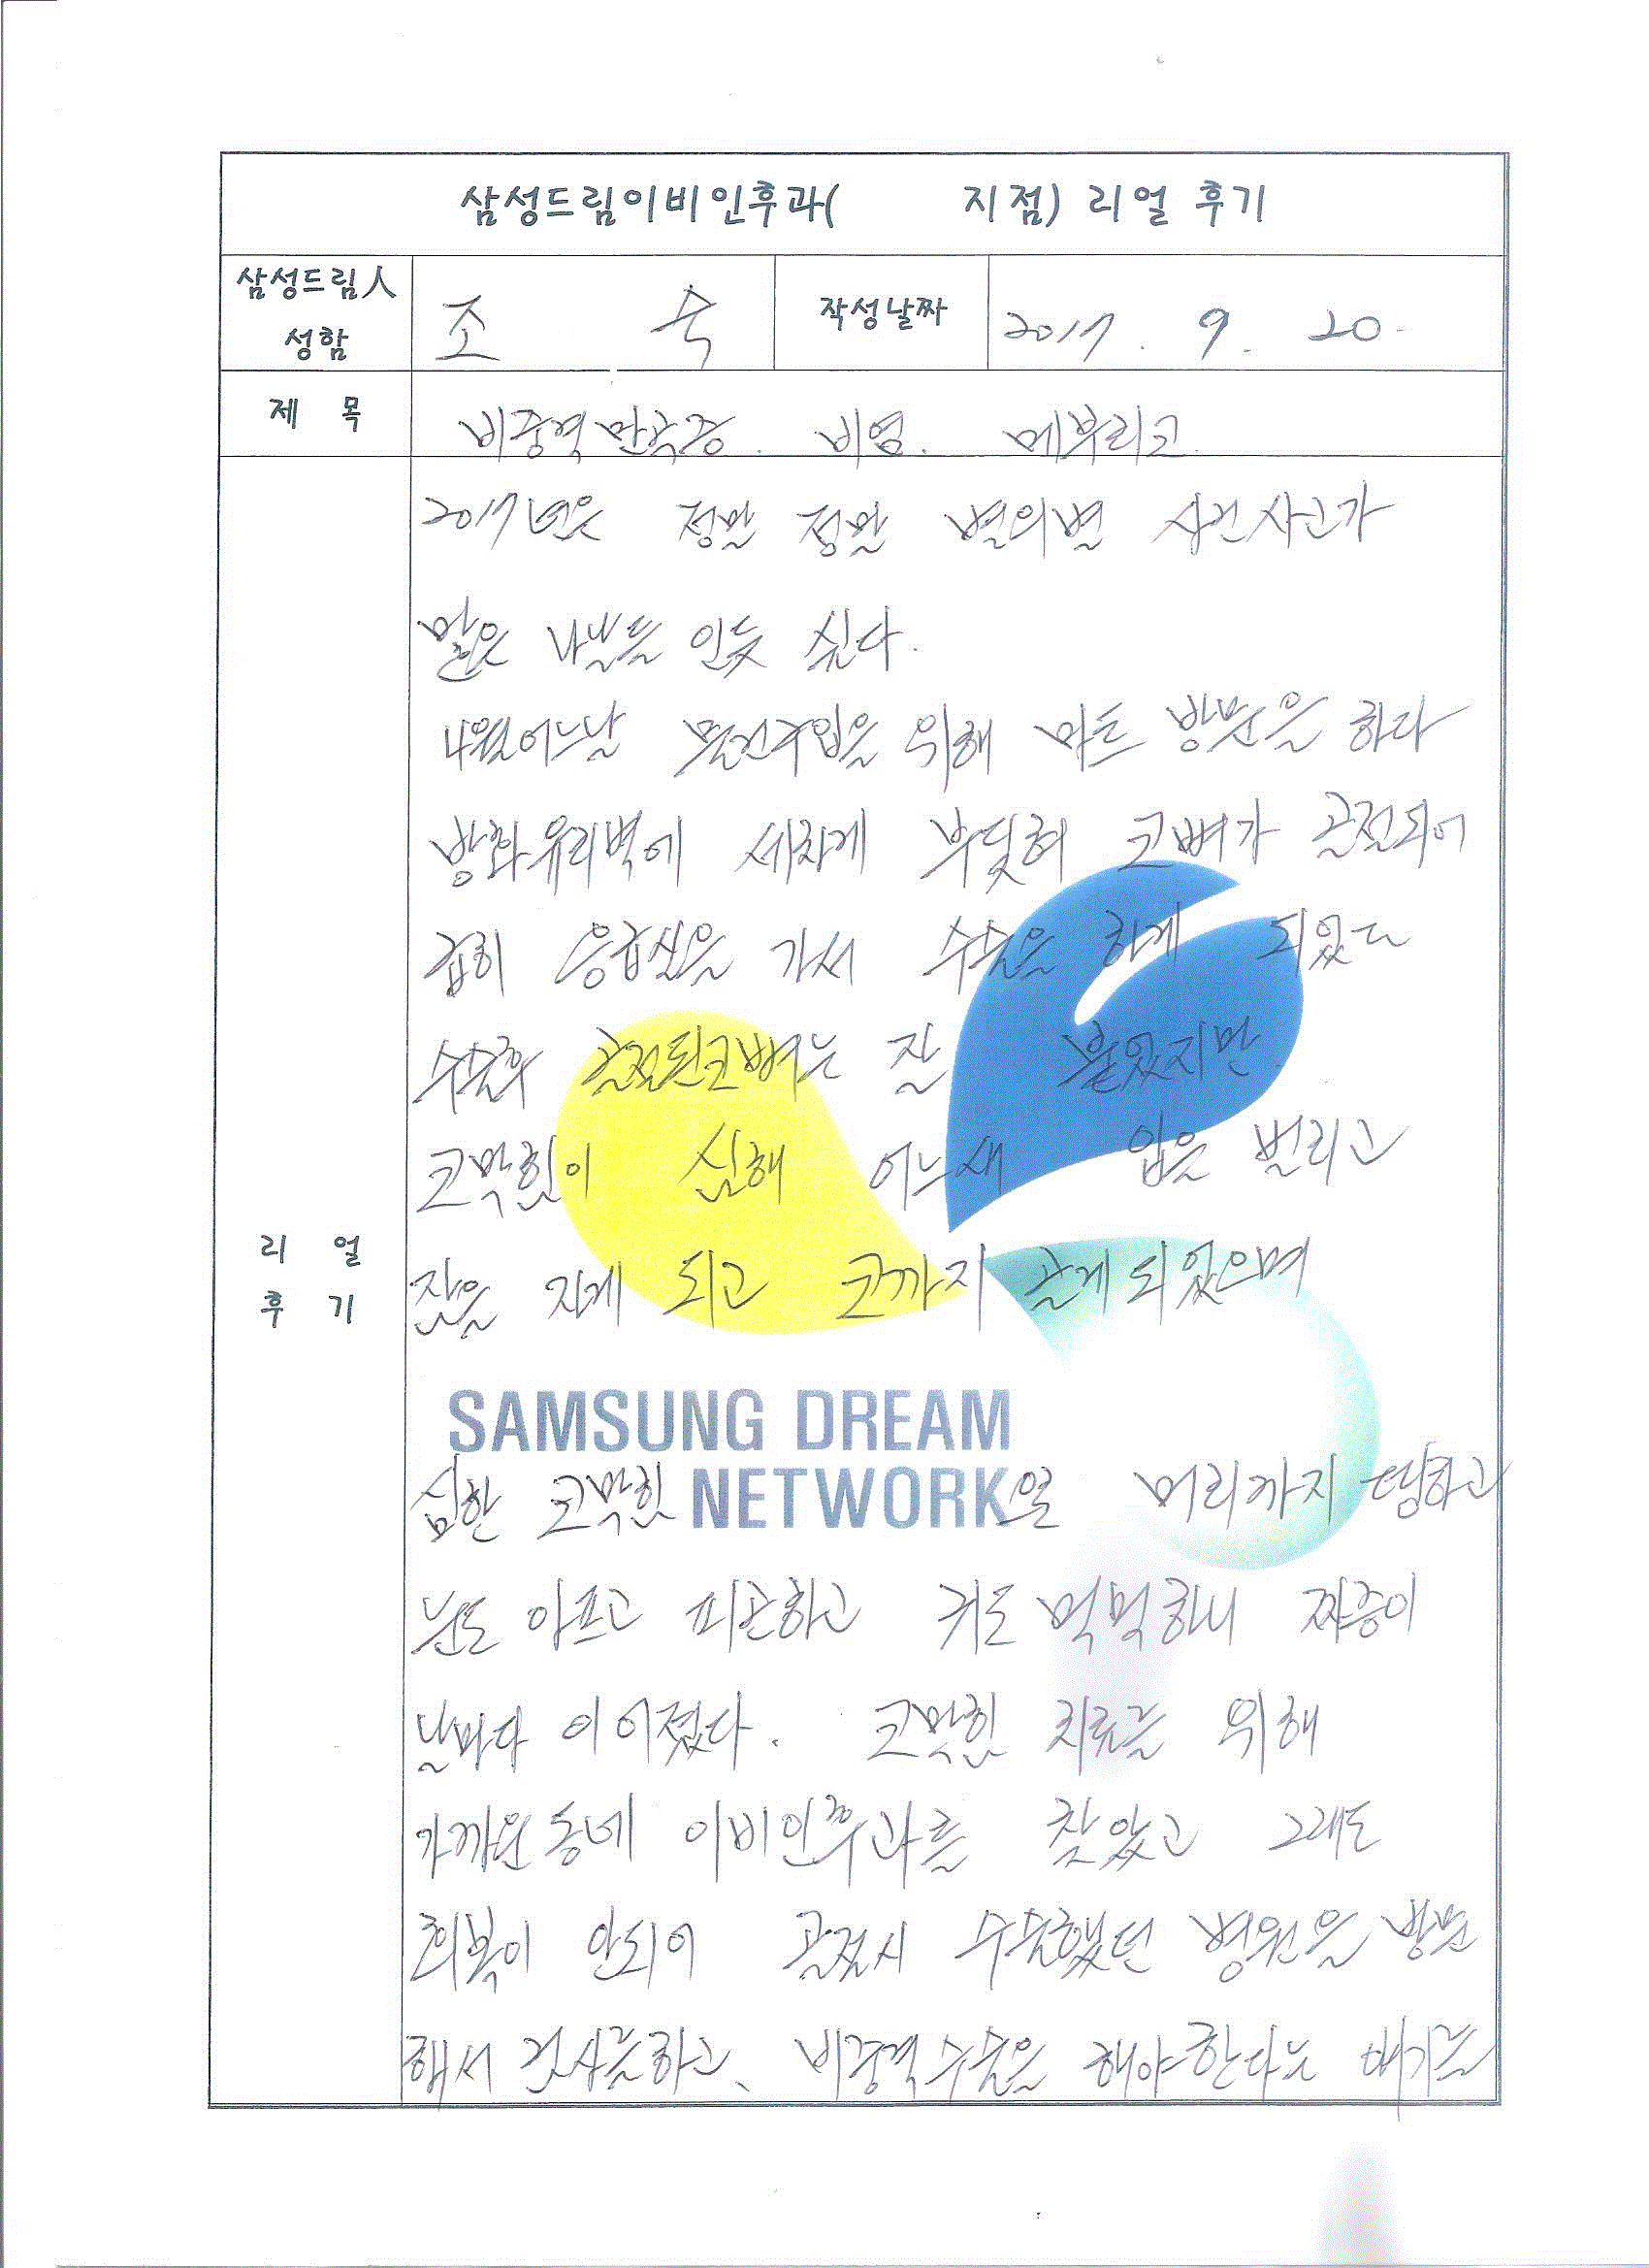 삼성드림이비인후과(      지점) 리얼 후기
삼성드림人 성함
조 숙
작성날짜
2017. 9. 20.
제 목
비중격만곡증. 비염. 메부리코
리 얼 후 기
2017년은 정말 정말 별의별 사건사고가
많은 나날들 인듯 싶다.
4월어느날 물건구입을 위해 마트 방문을 하다
방화유리벽에 세차게 부딪혀 코뼈가 골절되어
급히 응급실을 가서 수술을 하게 되었다
수술후 골절된코뼈는 잘 붙었지만
코막힘이 심해 어느새 입을 벌리고
잠을 자게 되고 코까지 골게되었으며
SAMSUNG DREAM
NETWORK
심한 코막힘 머리까지 띵하고
눈도 아프고 피곤하고 귀도 먹먹하니 짜증이
날마다 이어졌다. 코막힘 치료를 위해
가까운동네 이비인후과를 찾았고 그래도
회복이 안되어 골절시 수술했던 병원을 방문
해서 검사를하고, 비중격수술을 해야한다는 얘기를